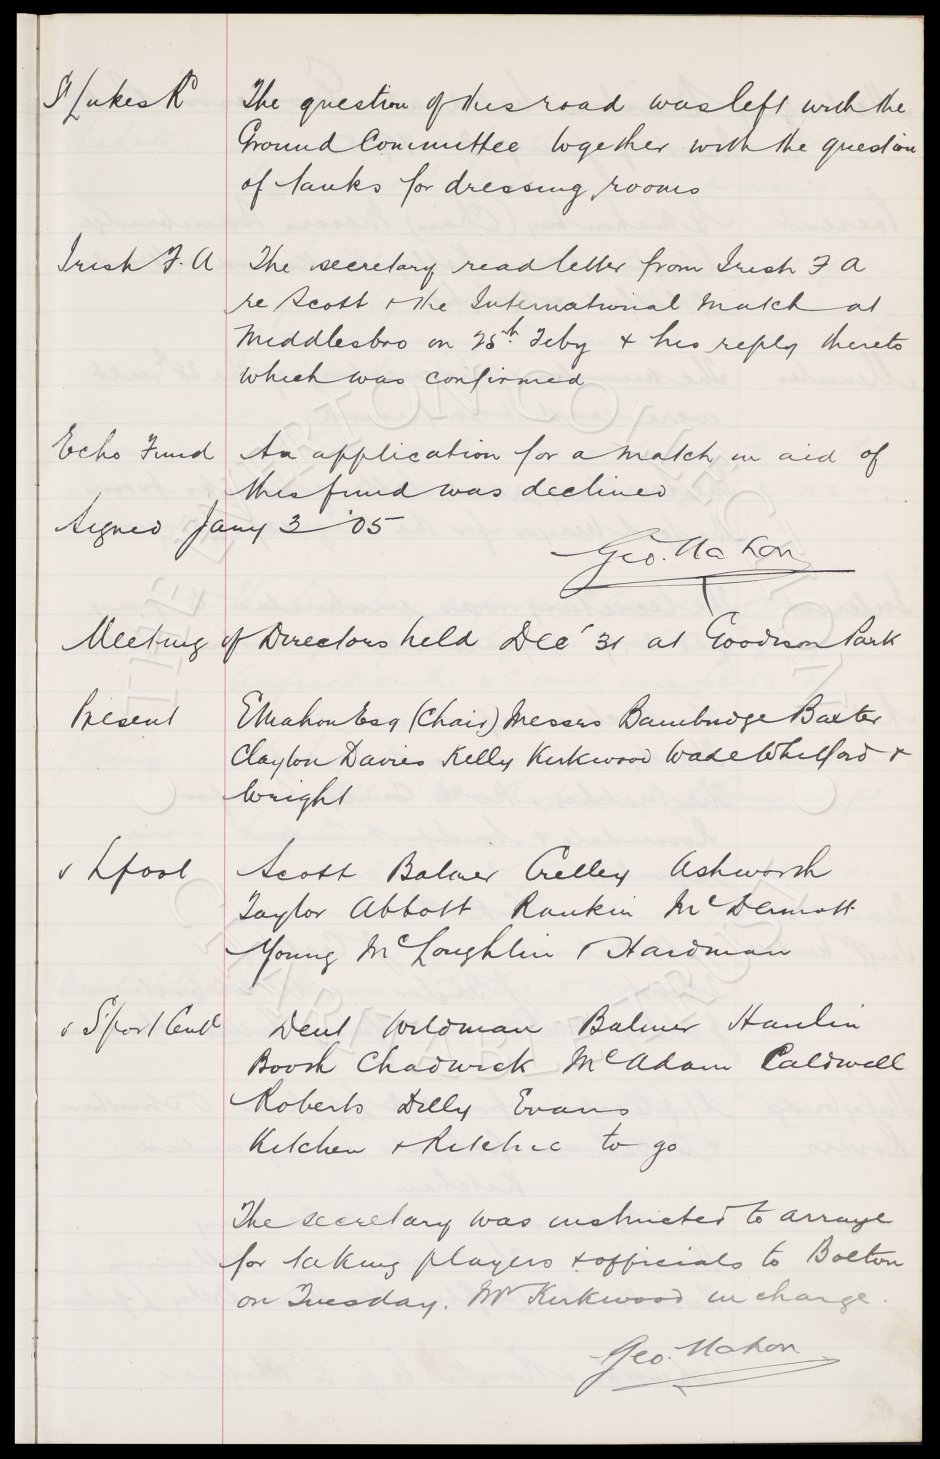 St Lukes Rd The question of this road was left with the
Ground Committee together with the question
of tanks for dressing rooms
Irish F.A The secretary read letter from Irish F A
re Scott & the International Match at
Middlesbro on 25th Feby & his reply thereto
which was confirmed
Echo Fund An application for a match in aid of
this fund was declined
Signed Jany 3 '05
Geo. Mahon
Meeting of Directors held Dec 31 at Goodison Park
Present G Mahon Esq (Chair) Messrs Bainbridge Baxter
Clayton Davies Kelly Kirkwood Wade Whitford &
Wright
v Lpool Scott Balmer Crelley Ashworth
Taylor Abbott Rankin McDermott
Young McLoughlin & Hardman
v S'port Centl Dent Wildman Balmer Hanlin
Booth Chadwick McAdam Caldwell
Roberts Dilly Evans
Kitchen & Ritchie to go
The secretary was instructed to arrange
for taking players & officials to Bolton
on Tuesday. Mr Kirkwood in charge.
Geo. Mahon
THE EVERTON COLLECTION
CHARITABLE TRUST